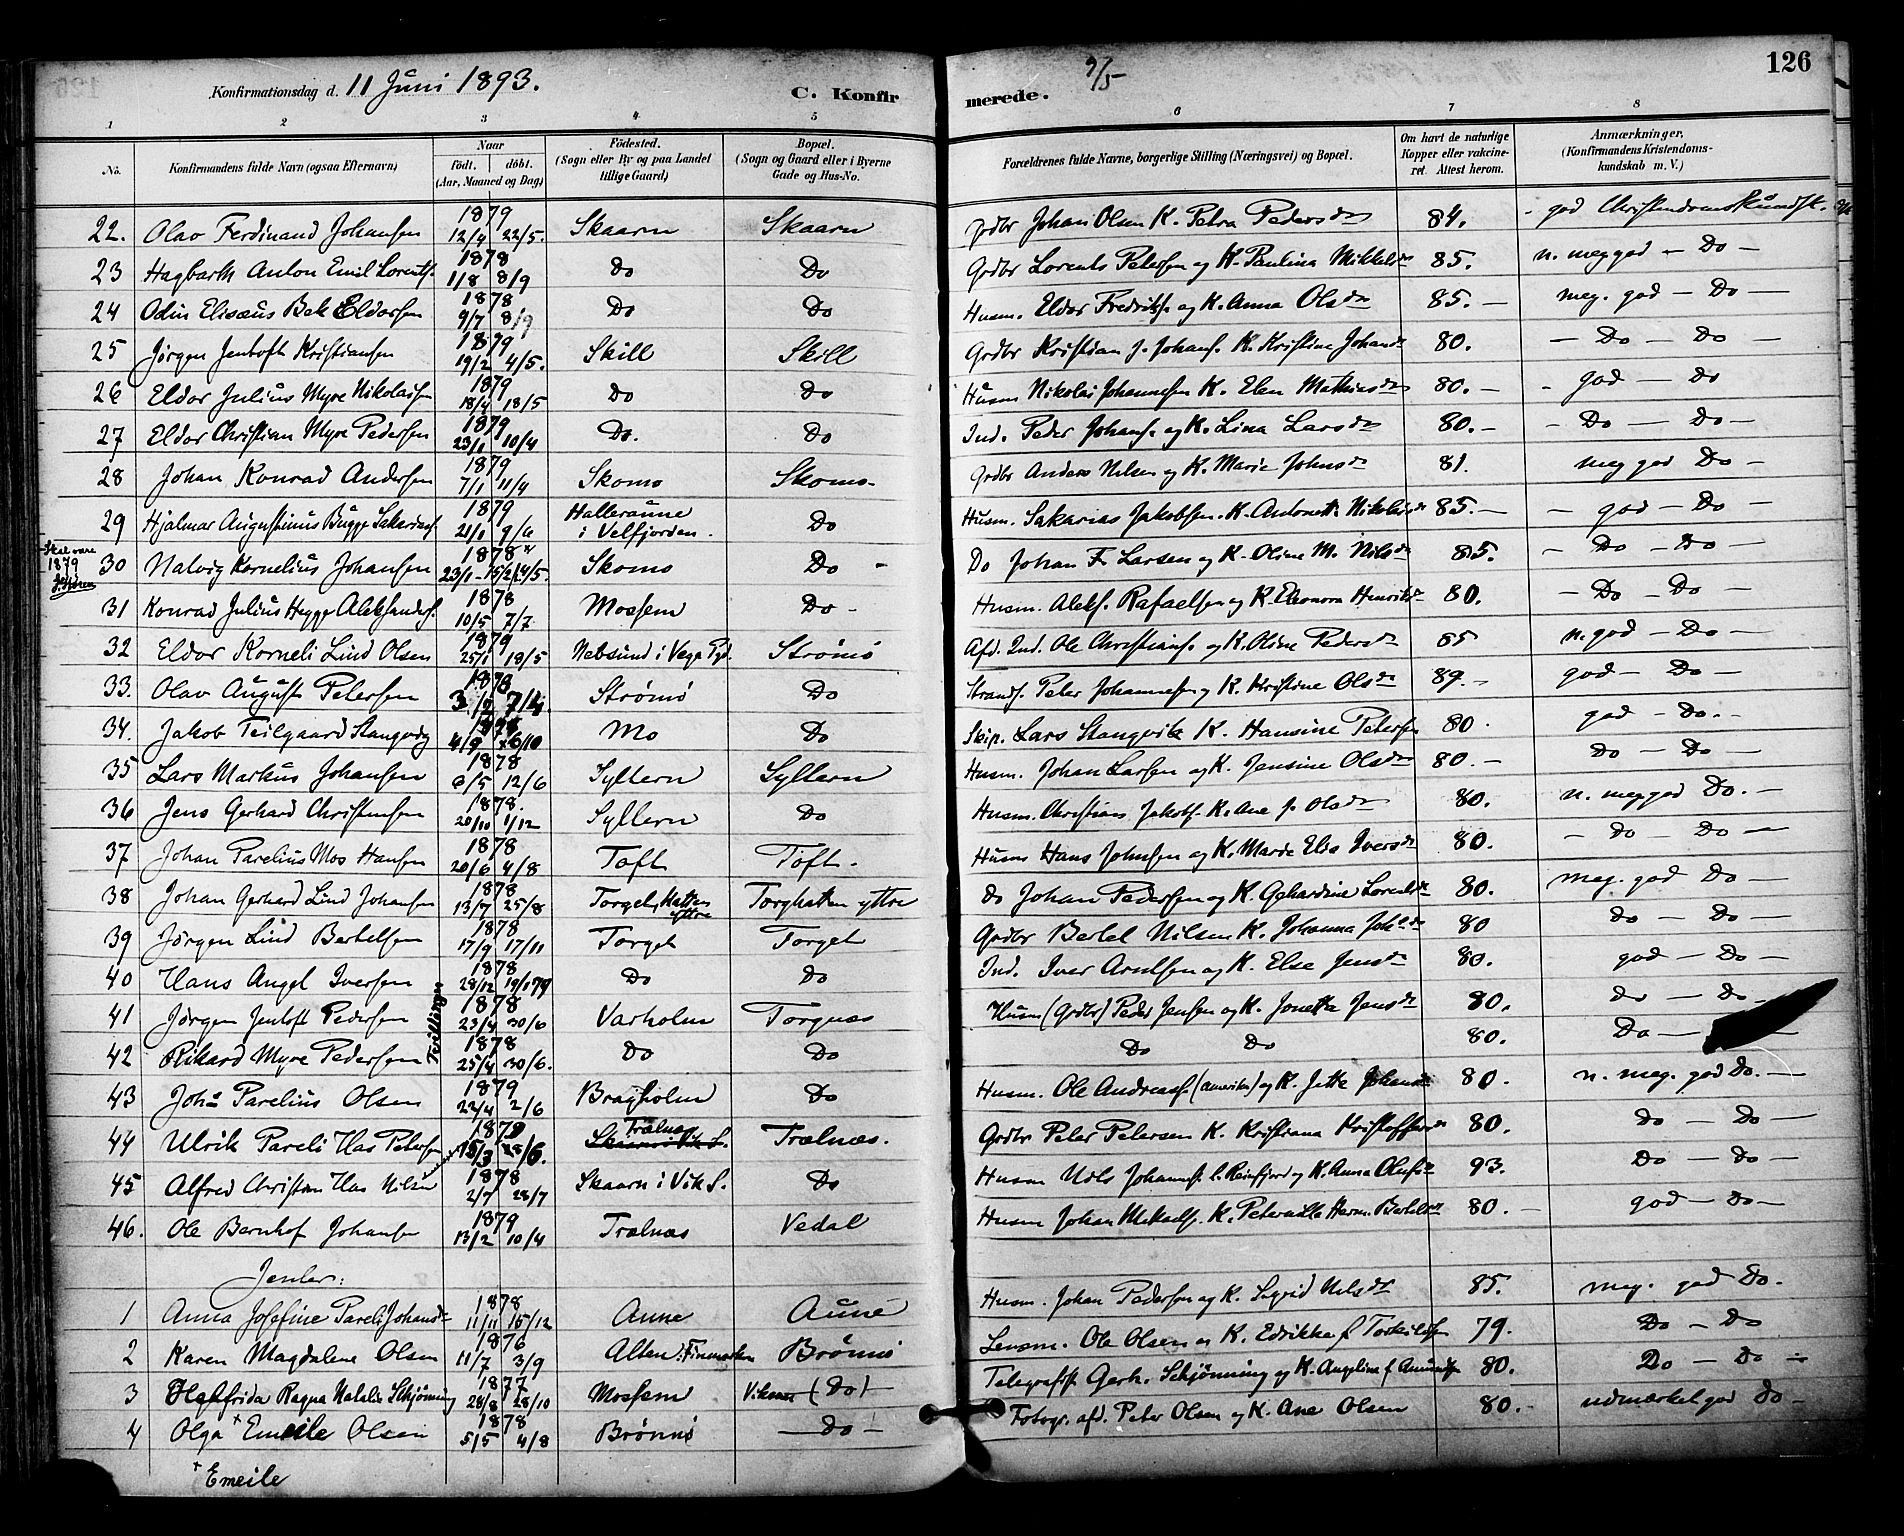 126
Konfirmationsdag d. 11 Juni 1893. C. Konfirmerede. 9/5
1 2 3 4 5 6 7 8
No. Konfirmandens fulde Navn (ogsaa Efternavn) Naar födt. döbt. (Aar, Maaned og Dag) Födested. (Sogn eller By og paa Landet tillige Gaard) Bopæl. (Sogn og Gaard eller i Byerne Gade og Hus-No. Forældrenes fulde Navne, borgerlige Stilling (Næringsvei) og Bopæl. Om havt de naturlige Kopper eller vakcineret. Attest herom. Anmærkninger. (Konfirmandens Kristendomskundskab m. V.)
22. Olav Ferdinand Johansen 1879 12/4 22/5. Skaarn Skaarn Grdbr Johan Olsen K. Petra Pedersdr 84. - god Christendomskundsk.
23 Hagbarth Anton Emil Lorents. 1878 1/8 8/9 Do Do Grdbr Lorents Petersen og K. Paulina Mikkelsdr 85. n. meg god - Do -
24 Odin Elisæus Bek Eldorsen 1878 9/7 8/9 Do Do Husm. Eldor Fredriks. og K. Anna Olsdr 85. - meg. god - Do -
25 Jørgen Jentoft Kristiansen 1879 19/2 4/5. Skill Skill Grdbr Kristian J. Johans. K. Kristine Johansdr 80. - Do - Do -
26 Eldor Julius Myre Nikolaisen 1879 18/4 18/5 Do Do Husm Nikolai Johannessen K. Elen Mathiasdr 80. - - god - Do
27 Eldor Christian Myre Pedersen 1879 23/1 10/4 Do. Do Ind. Peder Johans. og K. Lina Larsdr 80. - - Do - Do
28 Johan Konrad Andersen 1879 7/1 11/4 Skomo Skomo. Grdbr Anders Nilsen og K. Marie Johnsdr 81. meg god Do -
29 Hjalmar Augustinus Bugge Sakariass. 1879 21/1 9/6 Halleraune i Velfjorden. Do Husm. Sakarias Jakobsen. K. Antonette Nikolaisdr 85. - - god - Do
Skal være 1879
30 Nalvig Kornelius Johansen 1878 23/1 - 15/2 14/5. Skomo Do - Do Johan F. Larsen og K. Oline M. Nilsdr 85. - Do - Do -
31 Konrad Julius Hegge Aleksanders. 1878 10/5 7/7 Mossem Do - Husm. Aleks. Rafaelsen og K. Eleonora Henriksdr 80. - Do - Do -
32 Eldor Korneli Lind Olsen 1879 25/1 18/5 Nebsund i Vega Pgd. Strømö Afd. Ind. Ole Christians. og K. Oline Pedersdr 85 n. god - Do -
33. Olav August Petersen 1878 3/2 7/4. Strømö Do Strands. Peter Johannesen og K. Kristine Olsdr 89. - god - Do -
34. Jakob Teilgaard Stangvig 4/9 6/10 Mo Do Skip. Lars Stangvik K. Hansine Petersen 80. god - Do. -
35 Lars Markus Johansen 1878 6/5 12/6 Syltern Syltern Husm. Johan Larsen og K. Jensine Olsdr 80. - Do - Do -
36 Jens Gerhard Christensen 1878. 20/10 1/12 Syltern Do Husm. Christian Jakobs. K. Ane J. Olsdr 80. n. meg god Do. -
37 Johan Parelius Mos Hansen 1878 20/6 4/8 Toft Toft. Husm Hans Johnsen og K. Marde Elis Iversdr 80. - Do - Do -
38 Johan Gerhard Lind Johansen 1878 13/7 25/8 Torget, Hatten yttre Torghatten yttre do Johan Pedersen og K. Gehardine Lorentsdr 80. meg. god Do -
39 Jørgen Lind Bertelsen 1878 17/9 17/11 Torget Torget Grdbr Bertel Nilsen K. Johanna Johsdr 80 Do - Do -
40 Hans Angel Iversen 1878 28/12 19/1 79 Do Do Ind. Iver Arntsen og K. Else Jensdr 80. god - Do -
Tvillinger
41 Jørgen Jentoft Pedersen 1878 23/4 30/6 Varholm Torgnæs Husm (Grdbr) Peder Jensen og K. Jonetta Jensdr 80. do - Do -
42 Rikard Myre Pedersen 1878 25/4 30/6. Do Do Do Do 80. Do -
43 Johs Parelius Olsen 1879 22/4 2/6 Bragholm Do Husm. Ole Andreass. (amerika) og K. Jette Johansdr 80. n. meg. god Do. -
44 Ulrik Pareli Has Petersen 1879 15/3 /6. Trælnæs Trælnæs. Grdbr Peter Petersen K. Kristiana Kristoffersdr 80. Do - Do -
45 Alfred Christian Has Nilsen 1878 2/7 28/7 Skaarn i Vik S. Do Husm Nils Johanns. i. Reinfjord og K. Anna Olufsdr 93. Do - Do -
46. Ole Bernhof Johansen 1879 13/2 10/4 Trælnæs Vedal Husm Johan Mikaels. K. Peternille Herm. Bertelsdr 80. - god - Do -
Jenter:
1 Anna Josefine Pareli Johansdr 1878 11/11 15/12 Aune Aune Husm. Johan Pedersen og K. Sigrid Nilsdr 85. meg. god Do.
2 Karen Magdalene Olsen 1876 11/7 3/9 Alten i Finmarken Brønnö Lensm. Ole Olsen og K. Edrikke f Torkildsen 79. Do - Do
3 Ragna Natalie Schjønning 1877 28/8 28/10 Mossem (Do) - Telegrafist Gerh. Schjønning og K. Angelina f. Amundsen 80. Do - Do -
4 Olga + Emeile Olsen 1878 5/5 4/8 Brønnö - Do - Fotogr. afd. Peter Olsen og K. Ane Olsen 80. - udmærket god Do -
+ Emeile